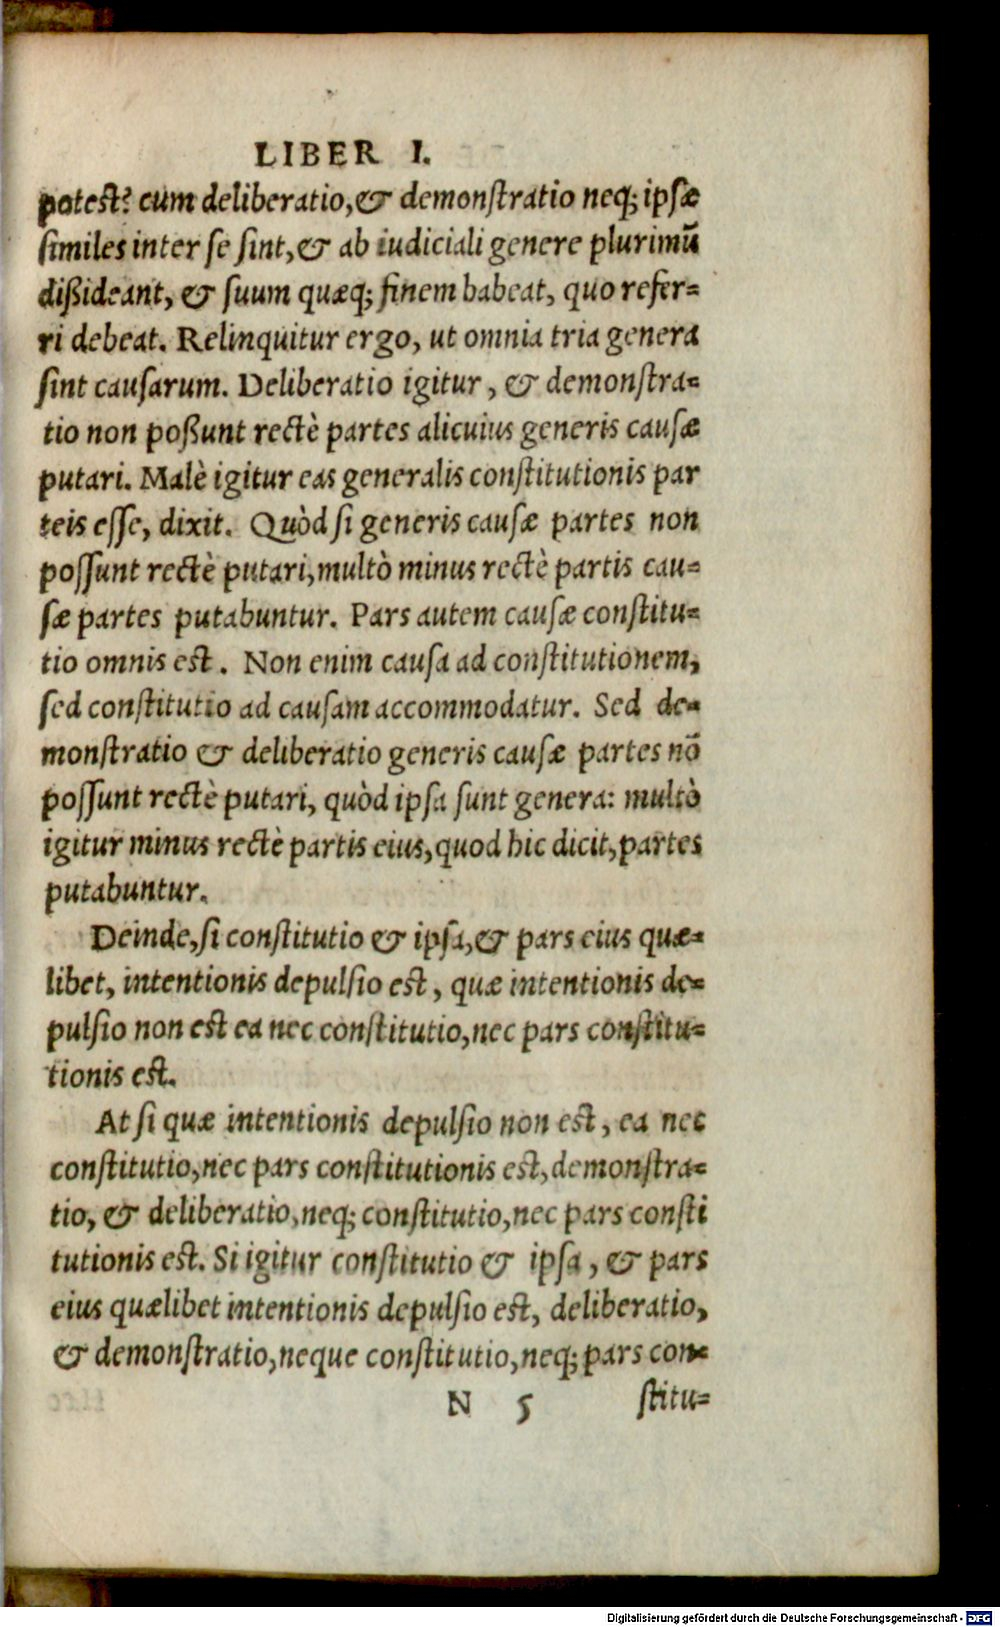 LIBER I.
potest? cum deliberatio, & demonstratio neq; ipsæ
similes inter se sint, & ab iudiciali genere plurimū
dißideant, & suum quæq; finem habeat, quo refer-
ri debeat. Relinquitur ergo, ut omnia tria genera
sint causarum. Deliberatio igitur, & demonstra-
tio non poßunt rectè partes alicuius generis causæ
putari. Malè igitur eas generalis constitutionis par
teis esse, dixit. Quòd si generis causæ partes non
possunt rectè putari, multò minus rectè partis cau-
sæ partes putabuntur. Pars autem causæ constitu-
tio omnis est. Non enim causa ad constitutionem,
sed constitutio ad causam accommodatur. Sed de-
monstratio & deliberatio generis causæ partes nō
possunt rectè putari, quòd ipsa sunt genera: multò
igitur minus rectè partis eius, quod hic dicit, partes
putabuntur.
Deinde, si constitutio & ipsa, & pars eius quæ-
libet, intentionis depulsio est, quæ intentionis de-
pulsio non est ea nec constitutio, nec pars constitu-
tionis est.
At si quæ intentionis depulsio non est, ea nec
constitutio, nec pars constitutionis est, demonstra-
tio, & deliberatio, neq; constitutio, nec pars consti
tutionis est. Si igitur constitutio & ipsa, & pars
eius quælibet intentionis depulsio est, deliberatio,
& demonstratio, neque constitutio, neq; pars con-
N 5 stitu-
Digitalisierung gefördert durch die Deutsche Forschungsgemeinschaft - DFG